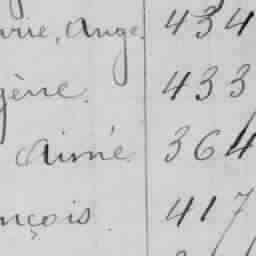 Ange. 434
gène. 433
Aimé 364
nçois. 417